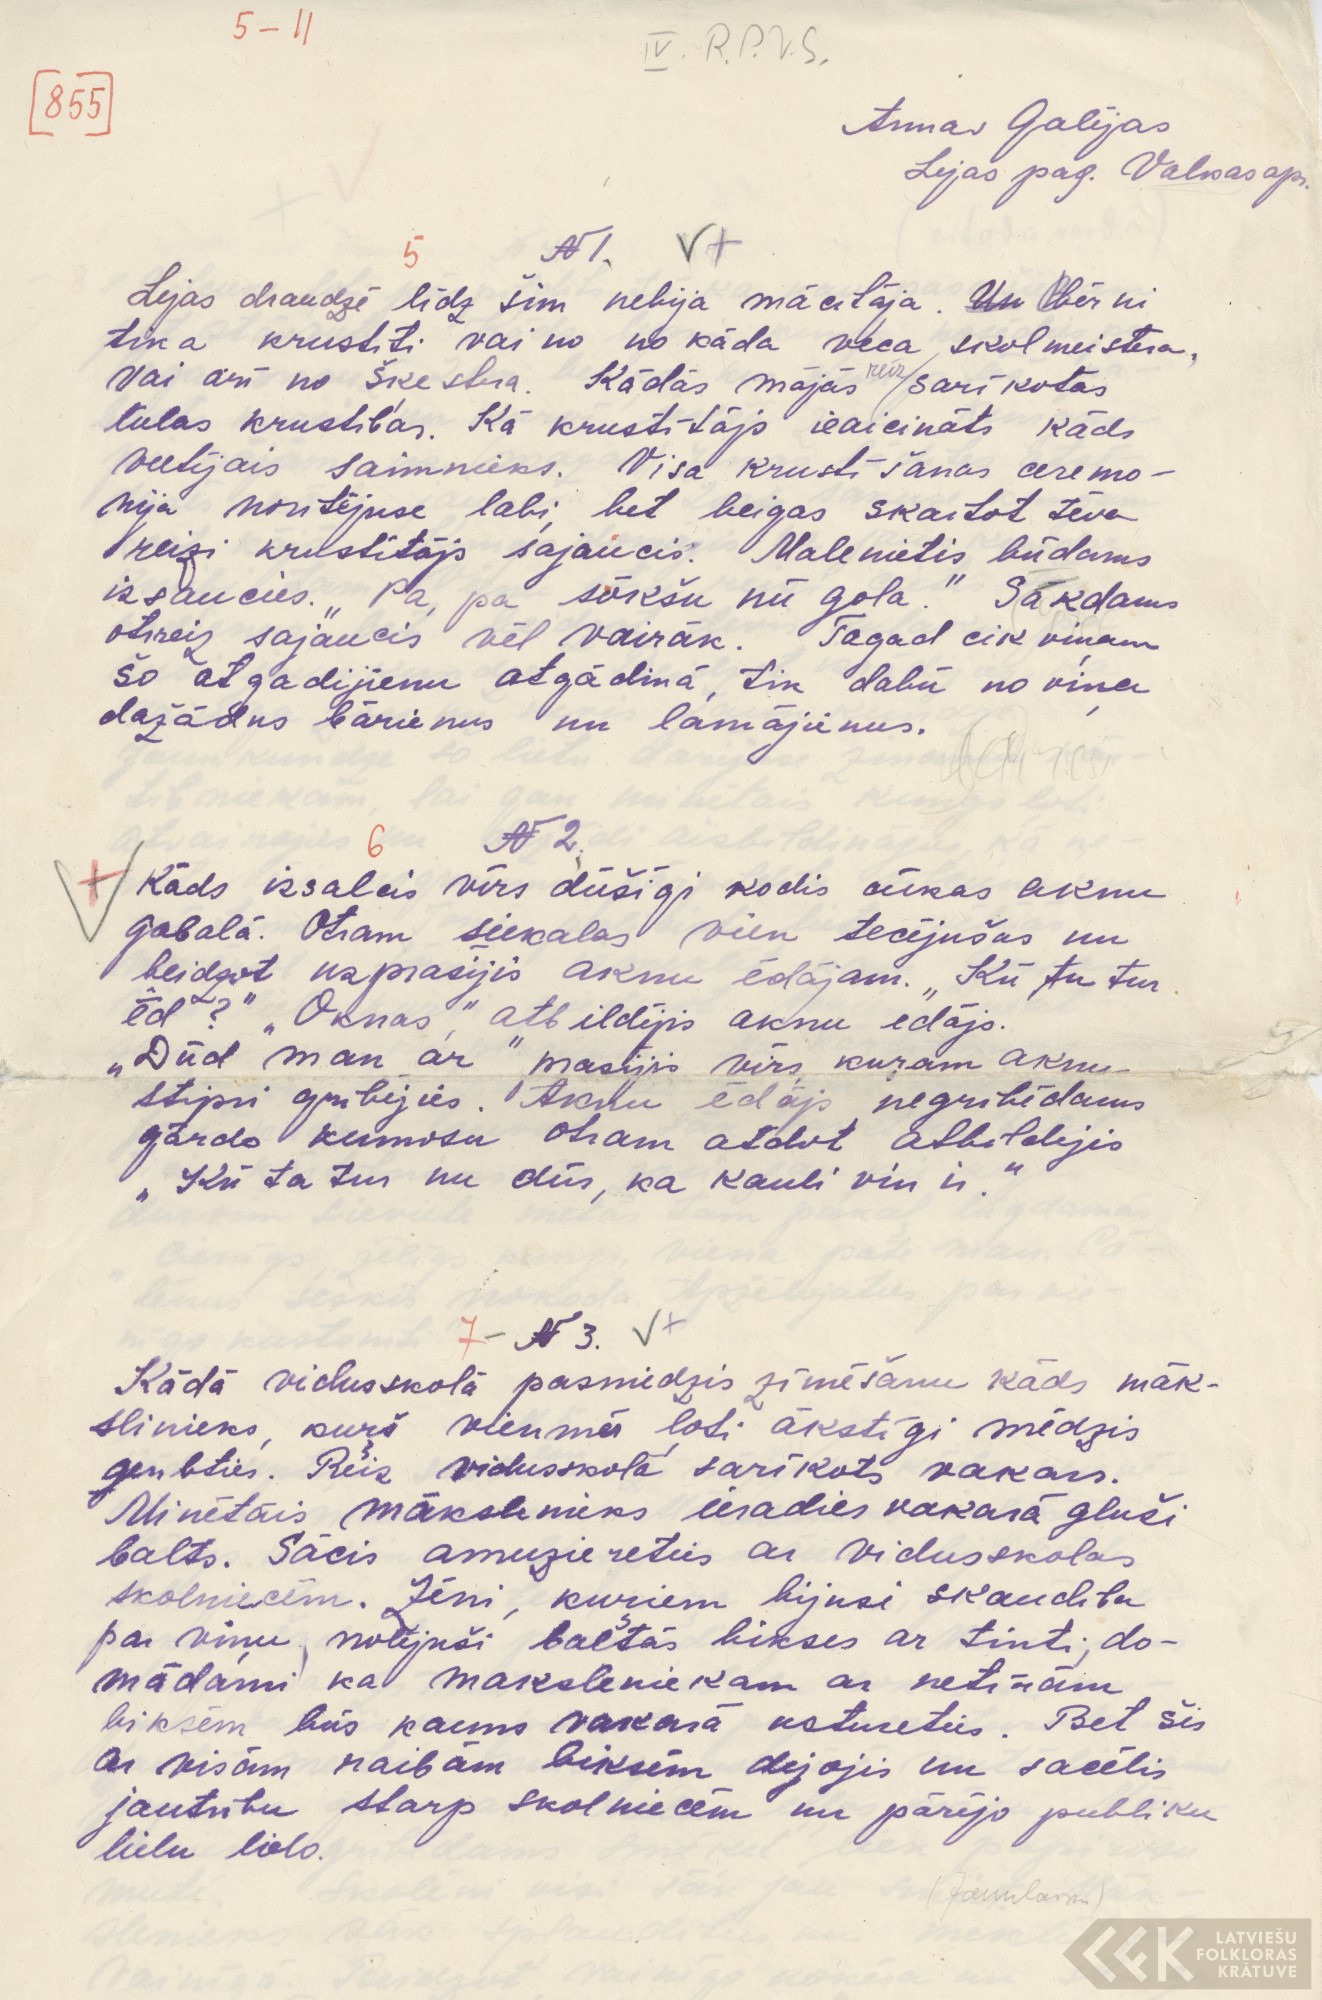 5-11
IV. R.P.V.S.
[855]
Anna Galējas
Lejas pag. Valkas apr.
5 N1. V+
Lejas draudzē līdz šim nebija mācītāja. Un Bērni
tika krustīti vai no no kāda veca skolmeistera,
vai arī no šķestera. Kādās mājās reiz sarīkotas
lielas krustības. Kā krustītājs ieaicināts kāds
vietējais saimnieks. Visa krustīšanas ceremo-
nija noritējuse labi, bet beigas skaitot tēva
reizi krustītājs sajaucis. Malenietis būdams
izsaucies. „Pa, pa sōkšu nū gola." Sākdams
otreiz sajaucis vēl vairāk. Tagad cik viņam
šo atgadījienu atgādinā, tik dabū no viņa
dažādus bārienus un lāmājienus.
6 N 2.
+ Kāds izsalcis vīrs dūšīgi kodis cūkas aknu
gabalā. Otram siekalas vien tecējušas un
beidzot uzprasījis aknu ēdājam. „Kū tu tur
ēd?" „Oknas," atbildējis aknu ēdājs.
„Dūd man ar" prasījis vīrs, kuram aknu
stipri gribējies. Aknu ēdājs negribēdams
gardo kumosu otram atdot atbildējis
„Kū ta tur nu dūs, ka kauli vin ir."
7- N 3. V+
Kādā vidusskolā pasniedzis zīmēšanu kāds māk-
slinieks, kurš vienmēr ļoti ākstīgi mēdzis
ģerbties. Reiz vidusskolā sarīkots vakars.
Minētais mākslinieks ieradies vakarā gluži
balts. Sācis amuzierēties ar vidusskolas
skolniecēm. Zēni, kuriem bijusi skaudība
par viņu, nolējuši baltās bikses ar tinti, do-
mādami ka maksleniekam ar netīrām
biksēm būs kauns vakarā uzturēties. Bet šis
ar visām raibām biksēm dejojis un sacēlis
jautrību starp skolniecēm un pārējo publiku
lielu lielo.
LATVIEŠU
FOLKLORAS
KRĀTUVE